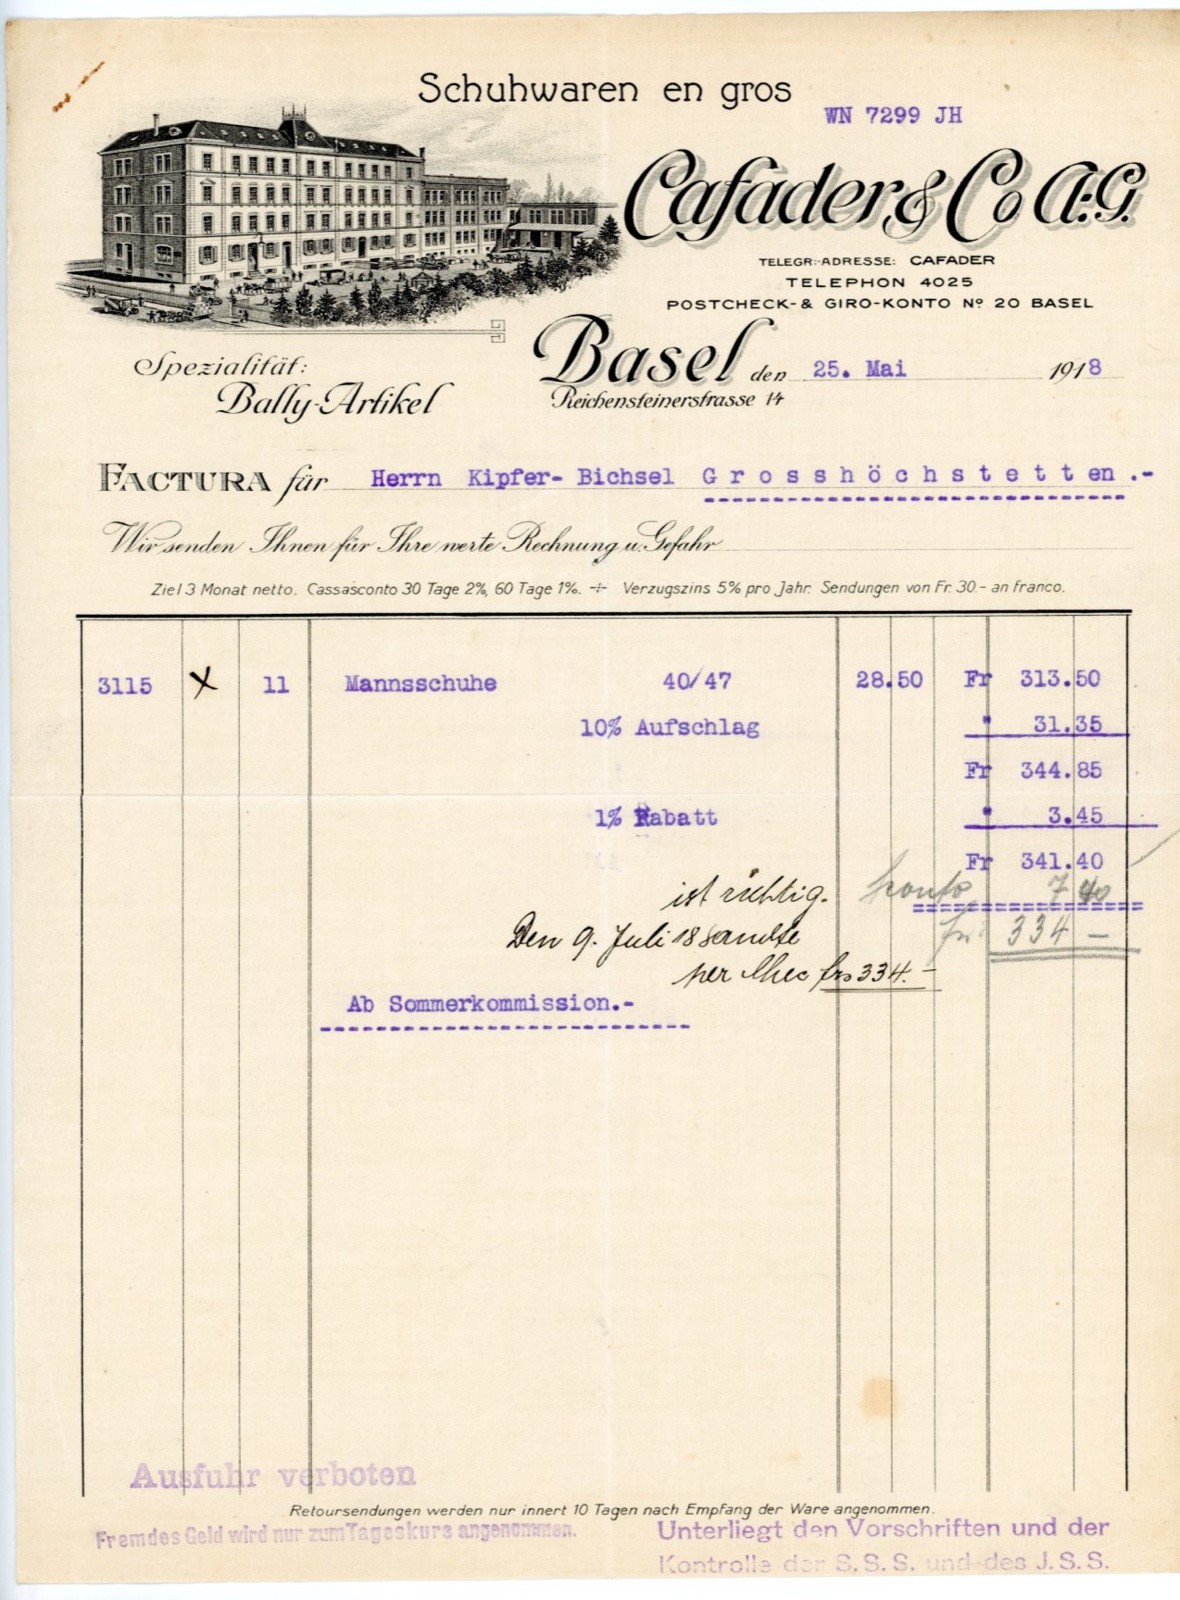 Schuhwaren en gros
WN 7299 JH
Cafader & Co A.-G.
TELEGR.-ADRESSE: CAFADER
TELEPHON 4025
POSTCHECK- & GIRO-KONTO Nº 20 BASEL
Spezialität:
Bally-Artikel
Basel den 25. Mai 1918
Reichensteinerstrasse 14
FACTURA für Herrn Kipfer- Bichsel Grosshöchstetten.-
Wir senden Ihnen für Ihre werte Rechnung u. Gefahr
Ziel 3 Monat netto. Cassasconto 30 Tage 2%, 60 Tage 1%. ÷ Verzugszins 5% pro Jahr. Sendungen von Fr. 30.- an franco.
3115 X 11 Mannsschuhe 40/47 28.50 Fr 313.50
10% Aufschlag " 31.35
Fr 344.85
1% Rabatt " 3.45
Fr 341.40
ist richtig. 7 40
Den 9. Juli 18 sandte fr. 334 —
per Chec frs 334.—
Ab Sommerkommission.-
Ausfuhr verboten
Retoursendungen werden nur innert 10 Tagen nach Empfang der Ware angenommen.
Fremdes Geld wird nur zum Tageskurs angenommen.
Unterliegt den Vorschriften und der
Kontrolle der S.S.S. und des J.S.S.